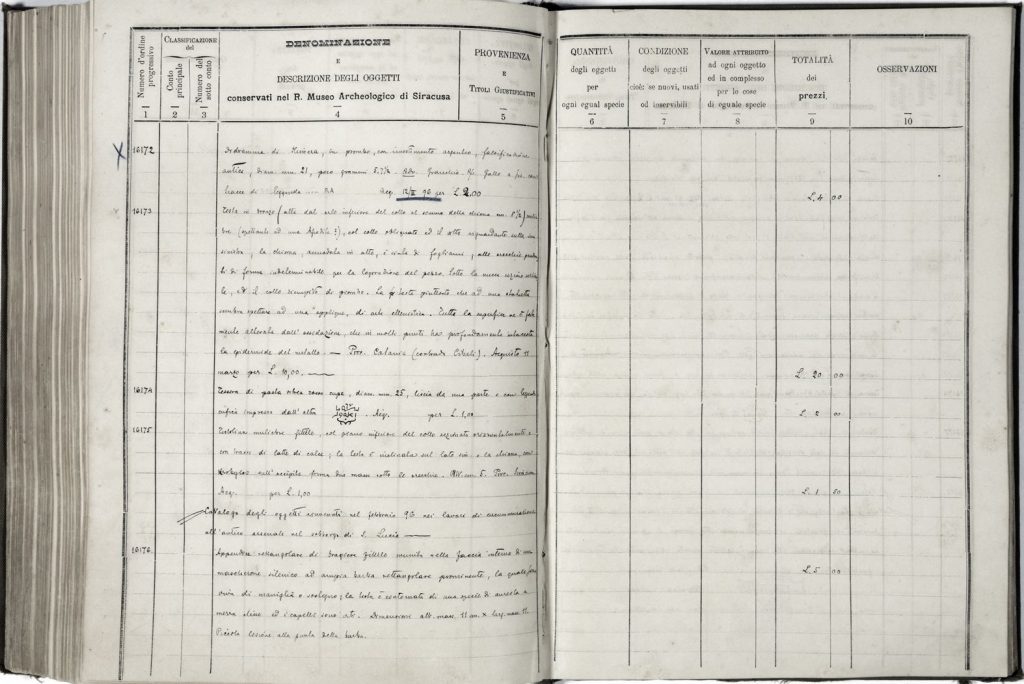 Numero d'ordine progressivo
CLASSIFICAZIONE
del
Conto principale
Numero del sotto conto
DENOMINAZIONE
E
DESCRIZIONE DEGLI OGGETTI
conservati nel R. Museo Archeologico di Siracusa
PROVENIENZA
E
TITOLI GIUSTIFICATIVI
1 2 3 4 5
QUANTITÀ
degli oggetti
per
ogni egual specie
CONDIZIONE
degli oggetti
cioè: se nuovi, usati
od inservibili
VALORE ATTRIBUITO
ad ogni oggetto
ed in complesso
per le cose
di eguale specie
TOTALITÀ
dei
prezzi
OSSERVAZIONI
6 7 8 9 10
X 16172
Didramma di in piombo, con investimento argenteo, falsificazione
antica, diam. mm. 21, peso grammi 5.7½
tracce di leggenda .... RA Acq. 12/III 96 per L. 2.00
L. 4 00
16173
Testa in bronzo (alta dal arto inferiore del collo al sommo della chioma cm. 8½) mulie
bre (spettante ad una Afrodite?), col collo obliquato ed il volto riguardante sulla sua
sinistra; la chioma, annodata in alto, è cinta di fogliami; alle orecchie penden
ti di forma indeterminabile per la corrosione del pezzo. Sotto la nuca
le, ed il collo riempito di piombo. La testa piuttosto che ad una statuetta
sembra spettare ad una "applique, di arte ellenistica. Tutta la superficie ne è for
temente alterata dall'ossidazione, che in molti punti ha profondamente intaccata
la epidermide del metallo — Prov. Catania (contrada Cibali). Acquisto 11
marzo per L. 10,00. —
L. 20 00
16174
Tessera di pasta vitrea rosso cupa, diam. mm. 25, liscia da una parte e con leggenda
cufica impressa dall'altra . Acq. per L. 1,00
L. 2 00
16175
Testolina muliebre fittile, col piano inferiore del collo segnato orizzontalmente e
con tracce di latte di calce; la testa è inclinata sul lato sin. e la chioma, con
sull'occipite forma due masse sotto le orecchie. Alt. cm. 5. Prov. Siracusa
Acq. per L. 1,00
L. 1 50
Catalogo degli oggetti rinvenuti nel febbraio 96 nei lavori di
all'antico arsenale nel sobborgo di S. Lucia —
16176
Appendice rettangolare di braciere fittile munita nella faccia interna di un
mascherone silenico ad ampia barba rettangolare prominente, la quale ser
viva di maniglia o sostegno; la testa è contornata di una specie di aureola a
ed i capelli sono irti. Dimensione alt. mass. 11 cm. × larg. mass. 11.
Piccola lesione alla punta della barba.
L. 5 00